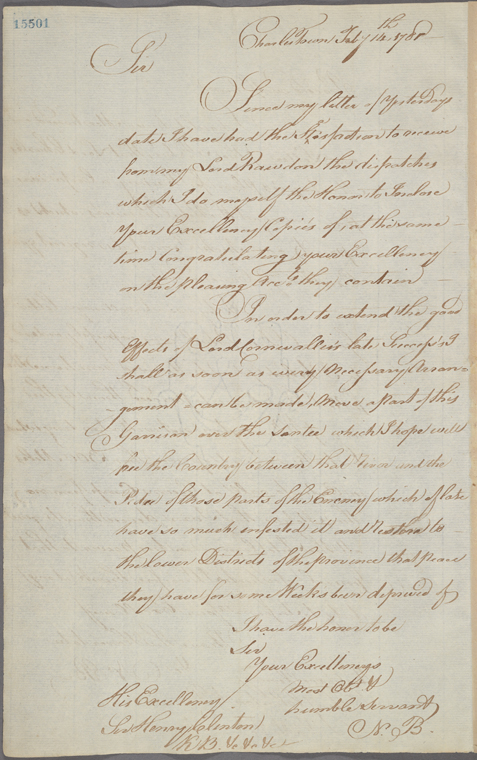 15501
Charles Town Feby 14th 1781
Sir
Since my letter of Yesterdays
date I have had the Satisfaction to receive
from my Lord Rawdon the dispatches
which I do myself the Honor to Inclose
Your Excellency Copies of, at the same
time Congratulating your Excellency
on the pleasing Accts they contain
In order to extend the good
Effects of Lord Cornwallis's late Success I
shall as soon as every Necessary Arran=
=gement can be made, Move a Part of this
Garrison over the Santee which I hope will
free the Country between that River and the
Pedee of those parts of the Enemy which of late
have so much infested it and restore to
the lower Districts of the Province that peace
they have for some Weeks been deprived of
I have the honor to be
Sir
Your Excellencys
Most Obt &
humble Servant
N. B.
His Excellency
Sir Henry Clinton
K B. &c &c &c